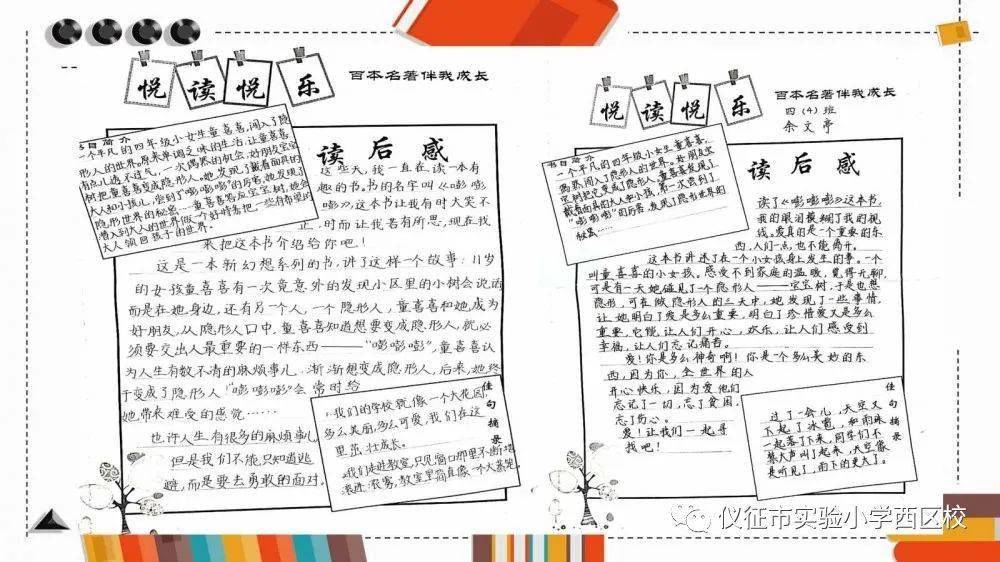 悦读悦乐
百本名著伴我成长
书目简介
一个平凡的四年级小女生童喜喜,闯入了隐
形人的世界。原来单调乏味的生活,让童喜喜
有点儿透不过气,一次偶然的机会,好朋友宝宝
树把童喜喜变成隐形人。她发现了戴着面具的
大人和小孩儿,尝到了“嘭嘭嘭”的厉害,她发现了
隐形世界的秘密……童喜喜答应宝宝树,她会
潜入到大人的世界做个好侦探把一些有希望的
大人领回孩子的世界。
读后感
这些天,我一直在读一本有
趣的书,书的名字叫《嘭嘭
嘭》,这本书让我有时大笑不
止,时而让我若有所思,现在我
来把这本书介绍给你吧!
这是一本新幻想系列的书,讲了这样一个故事:11岁
的女孩童喜喜有一次竟意外的发现小区里的小树会说话
而是在她身边,还有另一个人,一个隐形人,童喜喜和她成为
好朋友,从隐形人口中,童喜喜知道想要变成隐形人,就必
须要交出人最重要的一件东西——“嘭嘭嘭”,童喜喜认
为人生有数不清的麻烦事儿,渐渐想变成隐形人,后来,她终
于变成了隐形人!“嘭嘭嘭”会常时给
她带来难受的感觉……
也许人生有很多的麻烦事儿
但是我们不能只知道逃
避,而是要去勇敢的面对。
佳句摘录
我们的学校就像一个大花园,
多么美丽,多么可爱,我们在这
里茁壮成长。
我们走进教室,只见窗口那里不断地
滚进浓雾,教室里简直像一个大蒸笼。
悦读悦乐
百本名著伴我成长
四(4)班
余文亭
书目简介
一个平凡的四年级小女生童喜喜,
偶然闯入了隐形人的世界。好朋友宝
宝树把它变成了隐形人,童喜喜发现了
戴着面具的大人和小孩,第一次尝到了
“嘭嘭嘭”的厉害,发现了隐形世界的
秘密……
读后感
读了《嘭嘭嘭》这本书,
我的眼泪模糊了我的视
线。爱真的是一个重要的东
西,人们一点,也不能离开。
这本书讲述了在一个小女孩身上发生的事。一个
叫童喜喜的小女孩,感受不到家庭的温暖,觉得无聊,
可是有一天她碰见了一个隐形人——宝宝树,于是也想
隐形,可在做隐形人的三天中,她发现了一些事情,
让她明白了爱是多么重要,明白了珍惜爱又是多么
重要,它能让人们开心,欢乐,让人们感受到
幸福,让人们忘记痛苦。
爱!你是多么神奇啊!你是一个多么美妙的东
西,因为你,全世界的人
开心快乐,因为爱他们
忘记了一切,忘了贫困,
忘了伤心。
爱!让我们一起寻
找吧!
佳句摘录
过了一会儿,天空又
下起了冰雹,和雨珠
一起落下来,同学们不
禁大声叫了起来,天空像
是听见了,雨下的更大了。
仪征市实验小学西区校